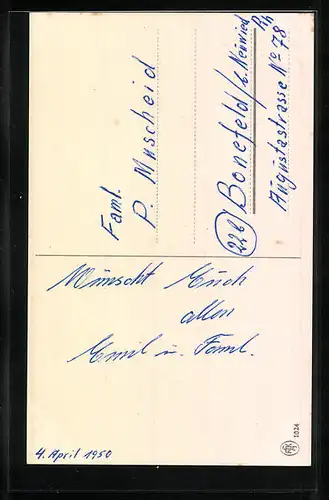 Faml.
P. Muscheid
(22b) Bonefeld / b. Neuwied
Rh
Augustastrasse No 78
Wünscht Euch
allen
Emil u. Faml.
4. April 1950
1024